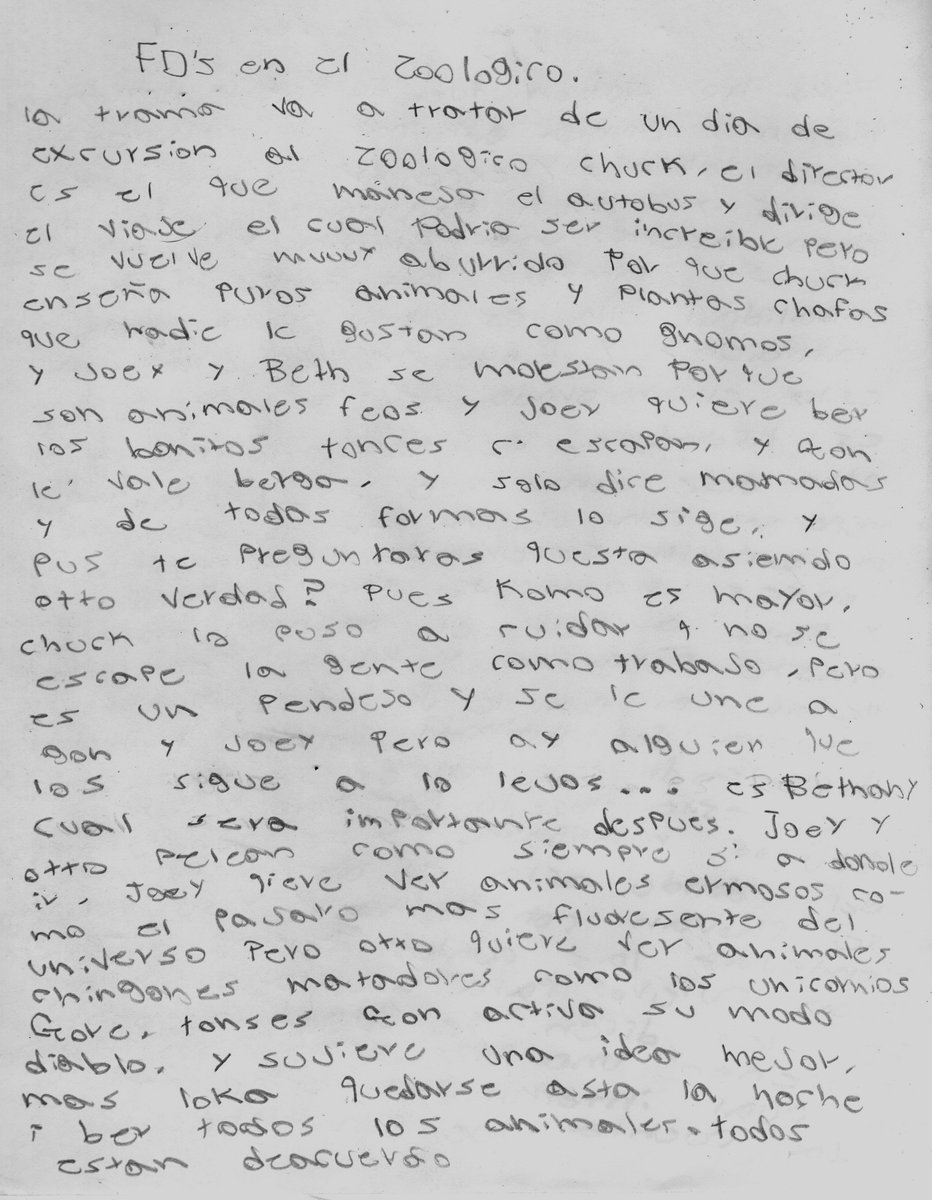 FD's en el zoologico.
la trama va a tratar de un dia de
excursion al zoologico chuck, el director
es el que maneso el autobus y dirige
el viase el cual podria ser increible pero
se vuelve muuuy aburrido por que chuck
enseña puros animales y plantas chafas
que nadie le gustan como gnomos,
y Joey y Beth se molestan porque
son animales feos y Joey quiere ber
los bonitos tonces escapan, y Gon
le vale berga, y solo dice mamadas
y de todas formas lo sige, y
pus te preguntaras questa asiendo
otto verdad? pues komo es mayor,
chuck lo puso a cuidar q no se
escape la gente como trabaso, pero
es un pendeso y se le une a
gon y Joey pero ay alguien que
los sigue a lo leuos... es Bethany
cual sera importante despues. Joey y
otto pelean como siempre a donde
ir, Joey qiere ver animales ermosos co-
mo el pasaro mas fluoresente del
universo pero otto quiere ver animales
chingones matadores como los unicornios
Gore, tonses Gon activa su modo
diablo, y susiere una idea mejor,
mas loka quedarse asta la noche
i ber todos los animales, todos
estan deacuerdo